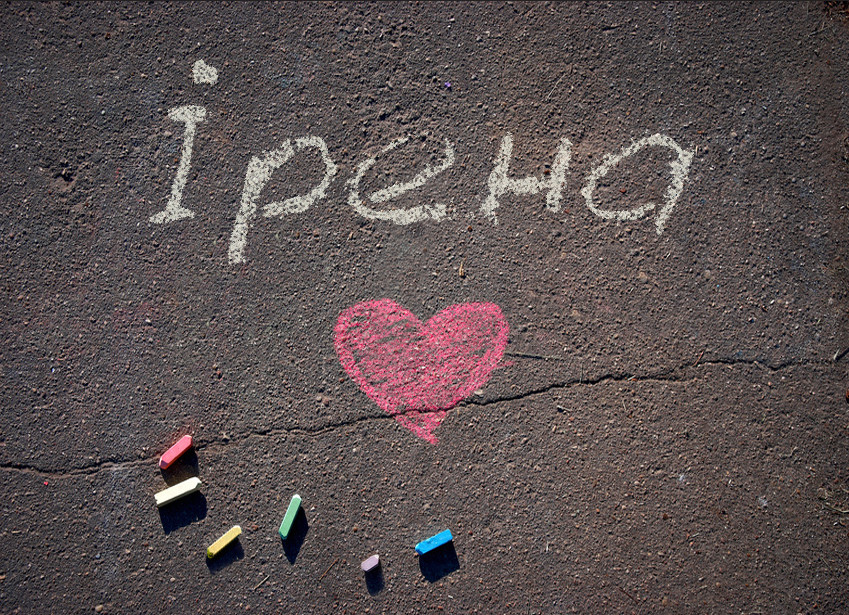 Ірена